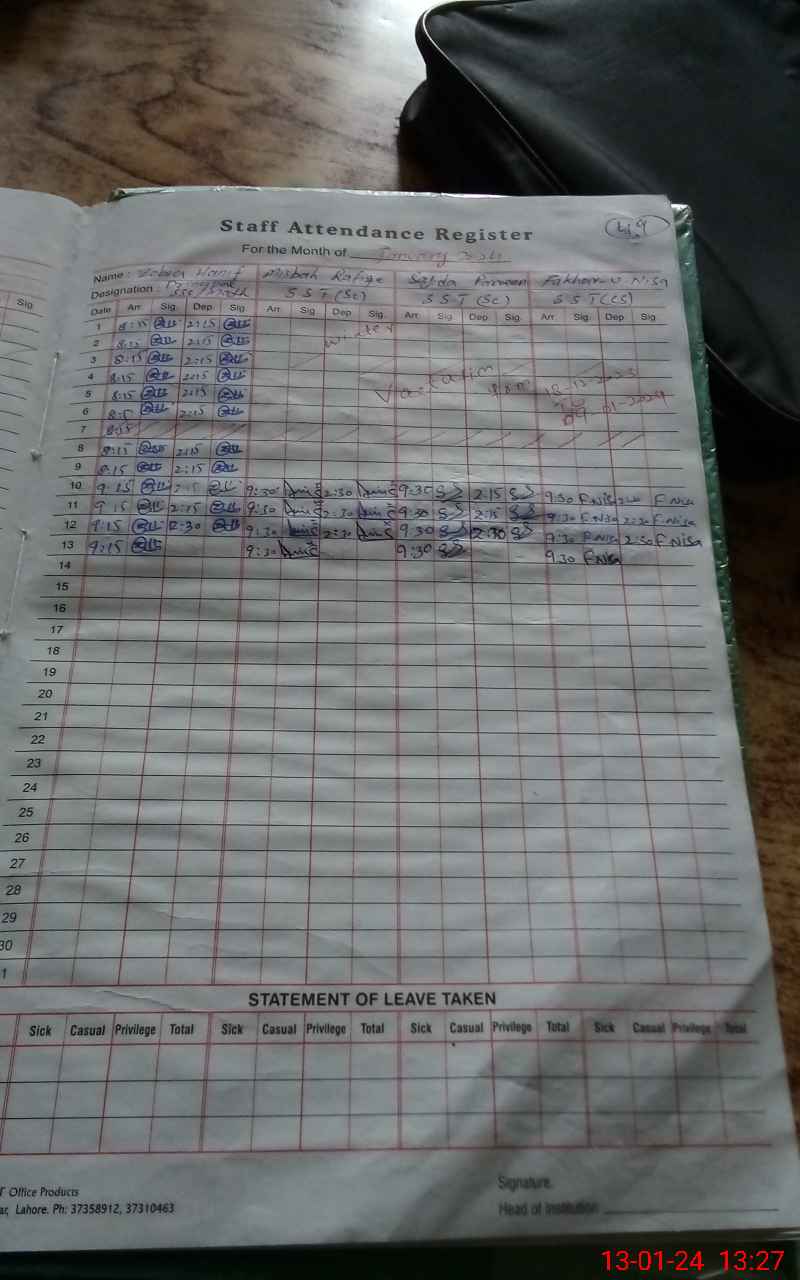 Staff Attendance Register
For the Month of January
Name : Hanif Misbah Rafiqe Sajda Parveen Fakhar-u-Nisa
Designation : Principal S S T (Sc) S S T (Sc) S S T (CS)
Sig.
Date Arr. Sig. Dep. Sig. Arr. Sig. Dep. Sig. Arr. Sig. Dep. Sig. Arr. Sig. Dep. Sig.
1 8:15 2:15
2 2:15 winter
3 8:15 2:15
4 8:15 2:15 Vacation from 18-12-2023
5 8:15 2:15 To
6 2:15 09-01-2024
7
8 8:15 2:15
9 8:15 2:15
10 9:15 2:15 9:30 2:30 9:30 2:15 9:30 F.Nisa F.Nisa
11 9:15 2:15 9:30 2:30 9:30 2:15 9:30 F.Nisa 2:30 F.Nisa
12 9:15 2:30 9:30 2:30 9:30 2:30 9:30 F.Nisa 2:30 F.Nisa
13 9:15 9:30 9:30 9:30 F.Nisa
14
15
16
17
18
19
20
21
22
23
24
25
26
27
28
29
30
1
STATEMENT OF LEAVE TAKEN
Sick Casual Privilege Total Sick Casual Privilege Total Sick Casual Privilege Total Sick Casual Privilege Total
T Office Products
ar, Lahore. Ph: 37358912, 37310463
Signature.
Head of Institution
13-01-24 13:27